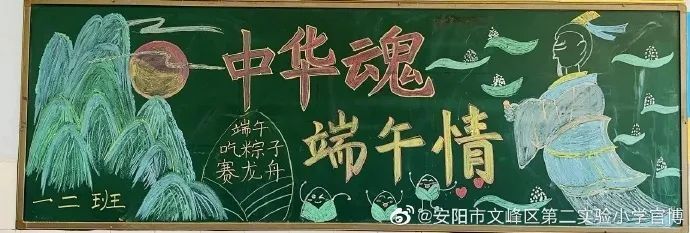 中华魂
端午情
端午
吃粽子
赛龙舟
一二班
@安阳市文峰区第二实验小学官博